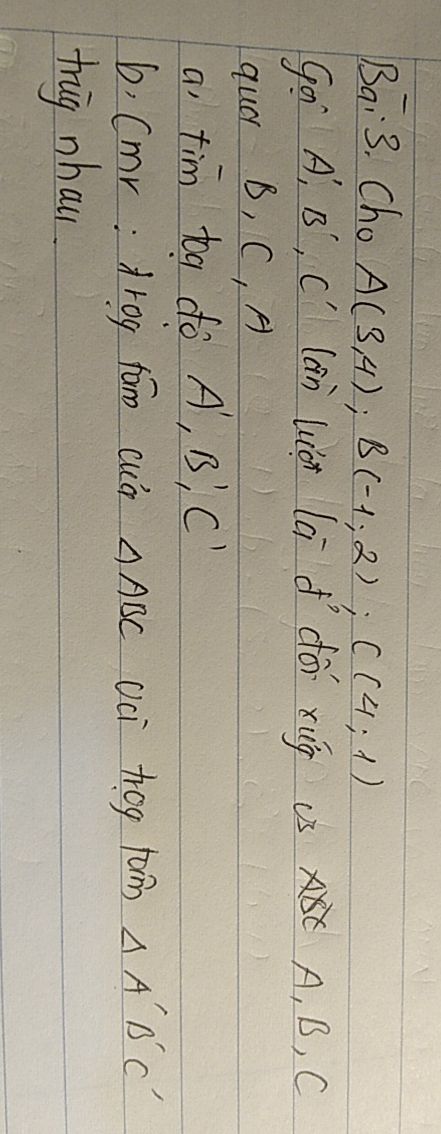 Bài 3. Cho A(3,4); B(-1;2); C(4;1)
Gọi A', B', C' lần lượt là đ' đối xứg vs A, B, C
qua B, C, A
a, tìm tọa độ A', B', C'
b, Cmr: trọg tâm của △ABC và trọg tâm △A'B'C'
trùg nhau.